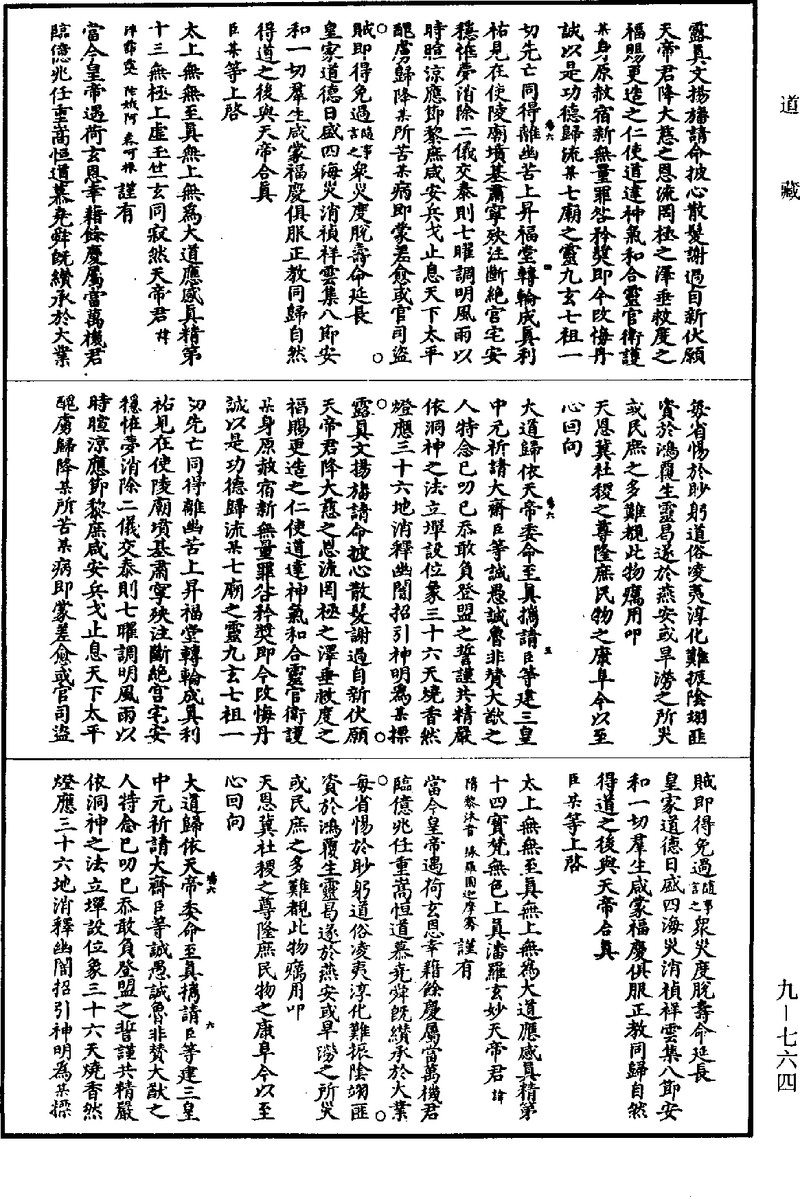 道藏
露真文揚旛請命披心散髮謝過自新伏願
天帝君降大慈之恩流罔極之澤垂救度之
福賜更造之仁使道達神氣和合靈官衛護
某身原赦宿新無量罪咎矜奬即今改悔丹
誠以是功德歸流某七廟之靈九玄七祖一
切先亡同得離幽苦上昇福堂轉輪成真利
祐見在使陵廟墳墓肅寧殃注斷絕宮宅安
穩恠夢消除二儀交泰則七曜調明風雨以
時暄涼應節黎庶咸安兵戈止息天下太平
醜虜歸降某所苦某病即蒙差愈或官司盜
賊即得免過隨事言之衆災度脫壽命延長
皇家道德日盛四海災消禎祥雲集八節安
和一切羣生咸蒙福慶俱服正教同歸自然
得道之後與天帝合真
臣某等上啓
太上無無至真無上無為大道應感真精第
十三無極上虛玉世玄同寂然天帝君諱
謹有
當今皇帝遇荷玄恩幸藉餘慶屬當萬機君
臨億兆任重嵩恒道慕堯舜旣纘承於大業
每省惕於眇躬道俗凌夷淳化難振陰翊匪
資於鴻覆生靈曷遂於燕安或旱澇之所災
或民庶之多難覩此物癘用叩
天恩冀社稷之尊隆庶民物之康阜今以至
心回向
大道歸依天帝委命至真擕請臣等建三皇
中元祈請大齋臣等誠愚誠魯非贊大猷之
人特念已叨已忝敢負登盟之誓謹共精嚴
依洞神之法立墠設位象三十六天燒香然
燈應三十六地消釋幽闇招引神明為某探
露真文揚旛請命披心散髮謝過自新伏願
天帝君降大慈之恩流罔極之澤垂救度之
福賜更造之仁使道達神氣和合靈官衛護
某身原赦宿新無量罪咎矜奬即今改悔丹
誠以是功德歸流某七廟之靈九玄七祖一
切先亡同得離幽苦上昇福堂轉輪成真利
祐見在使陵廟墳墓肅寧殃注斷絕宮宅安
穩恠夢消除二儀交泰則七曜調明風雨以
時暄涼應節黎庶咸安兵戈止息天下太平
醜虜歸降某所苦某病即蒙差愈或官司盜
賊即得免過隨事言之衆災度脫壽命延長
皇家道德日盛四海災消禎祥雲集八節安
和一切羣生咸蒙福慶俱服正教同歸自然
得道之後與天帝合真
臣某等上啓
太上無無至真無上無為大道應感真精第
十四寳梵無色上真潘羅玄妙天帝君諱
謹有
當今皇帝遇荷玄恩幸藉餘慶屬當萬機君
臨億兆任重嵩恒道慕堯舜旣纘承於大業
每省惕於眇躬道俗凌夷淳化難振陰翊匪
資於鴻覆生靈曷遂於燕安或旱澇之所災
或民庶之多難覩此物癘用叩
天恩冀社稷之尊隆庶民物之康阜今以至
心回向
大道歸依天帝委命至真擕請臣等建三皇
中元祈請大齋臣等誠愚誠魯非贊大猷之
人特念已叨已忝敢負登盟之誓謹共精嚴
依洞神之法立墠設位象三十六天燒香然
燈應三十六地消釋幽闇招引神明為某探
九—七六四